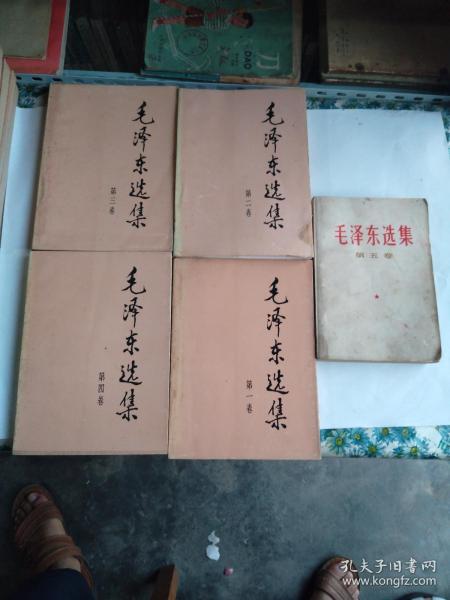 DAO
毛泽东选集
第三卷
毛泽东选集
第二卷
毛泽东选集
第五卷
毛泽东选集
第四卷
毛泽东选集
第一卷
孔夫子旧书网
www.kongfz.com